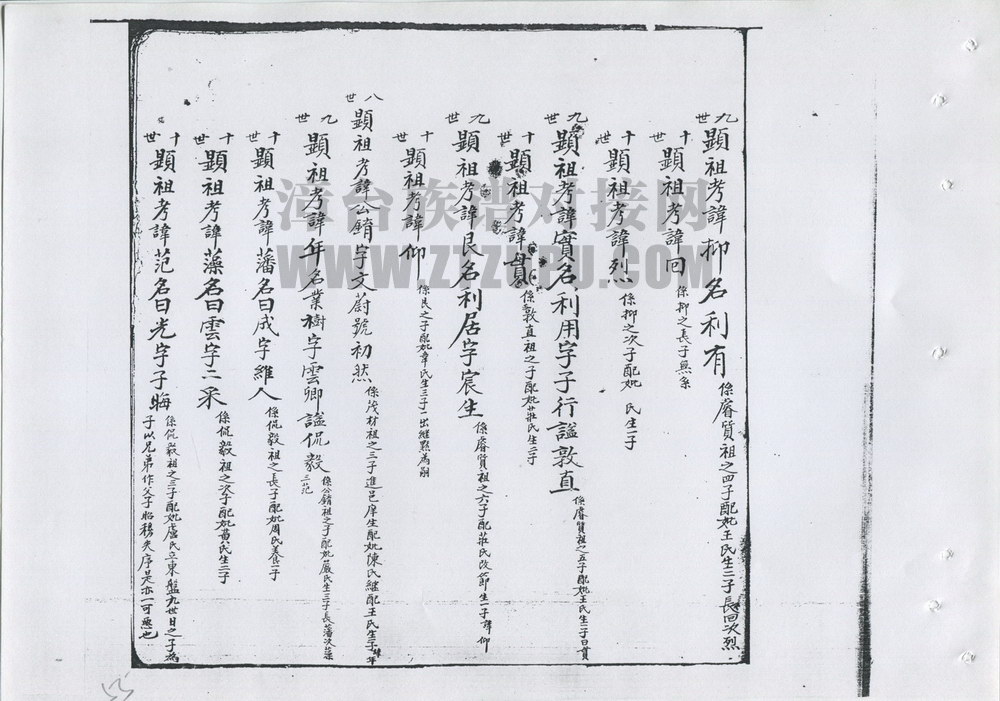 九世 顯祖考諱抑名利有 係睿質祖之四子配妣王氏生二子長回次烈
十世 顯祖考諱回 係抑之長子無条
十世 顯祖考諱烈 係抑之次子配妣 氏生一子
九世 顯祖考諱實名利用字子行謚敦直 係睿質祖之五子配妣王氏生二子曰貫
十世 顯祖考諱 係敦直祖之子配妣莊氏生二子
九世 顯祖考諱艮名利居字宸生 係睿質祖之六子配莊氏改節生一子諱仰
十世 顯祖考諱仰 係艮之子配妣韋氏生三子一出継
八世 顯祖考諱公錥字文蔚號初然 係茂材祖之三子進邑庠生配妣陳氏継配王氏生二子
九世 顯祖考諱年名業樹字雲卿謚侃毅 係公錥祖之子配妣嚴氏生三子長藩次藻
三范
十世 顯祖考諱藩名曰戌字維人 係侃毅祖之長子配妣周氏養一子
十世 顯祖考諱藻名曰雲字二采 係侃毅祖之次子配妣黃氏生二子
十世 顯祖考諱范名曰光字子晦 係侃毅祖之三子配妣盧氏立東盤九世日之子為
子以兄弟作父子昭穆失序是亦一可慼也
漳台族谱对接网
WWW.ZTZUPU.COM
55